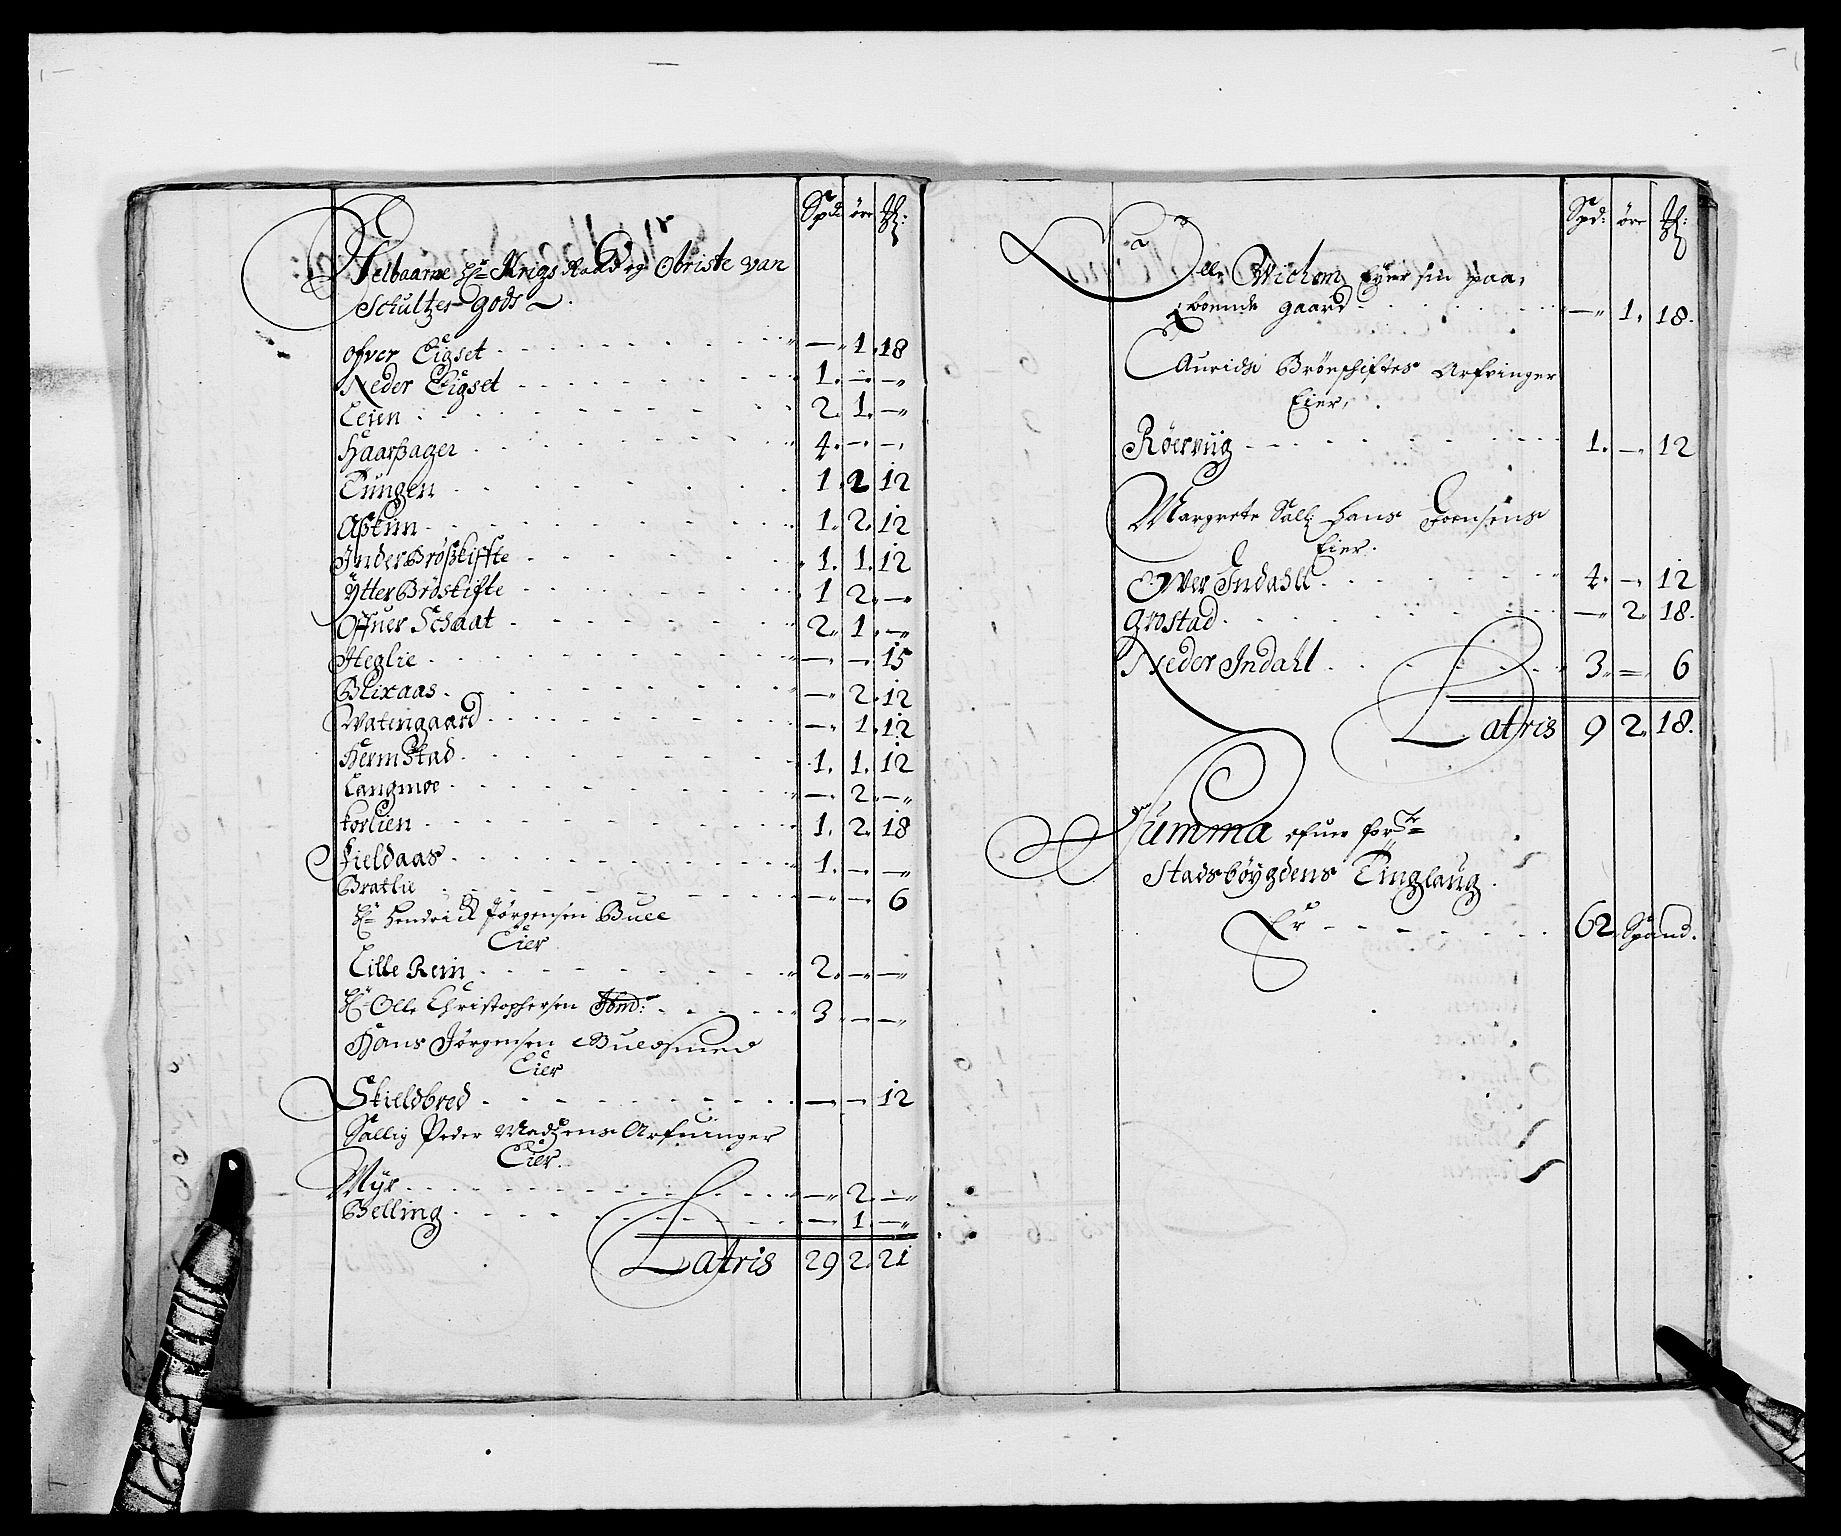 Spd: øre
Velbaarne Hr Krigs Raad og Obriste Van
Schultzes gods
ofver Eigset — 1. 18
Neder Eigset 1. — —
Leien 2. 1. —
Haarsager 4. — —
Tungen 1. 2 12
Askim 1. 2. 12
Inder Brøskiffte 1. 1. 12
Ytter Brøskifte 1 2. —
Offuer Schaat 2. 1. —
Heglie — — 15
Blixaas — 2. 12
Watengaard — 1. 12
Hermstad 1. 1. 12
Langmoe — 2. —
Korlien 1. 2. 18
Fieldaas 1. — —
Bratlie — — 6
Hr Hendrick Jørgensen Buce
Eier
Lille Rein 2. — —
Hr Olle Christophersen 3. — —
Hans Jørgensen Buldsmed
Eier
Skieldbred — — 12
Sallig Peder Madzens Arfuinger
Eier.
Myr — 2. —
Belling — 1. —
Latris 29 2. 21
Spd: øre
Olle Wichom Eyer sin paa-
boende gaard — 1. 18.
Lauridz Brørschiftes Arfvinger
Eier.
Røervüg 1. — 12
Margrete Sall: Hans Joensøns
Eier.
Over Indahll 4. — 12
Grostad — 2. 18.
Neder Indahl 3. — 6
Latris 9 2. 18.
Summa ofuer for
Stadsbøygdens Tinglaug
Er 62 Spand.